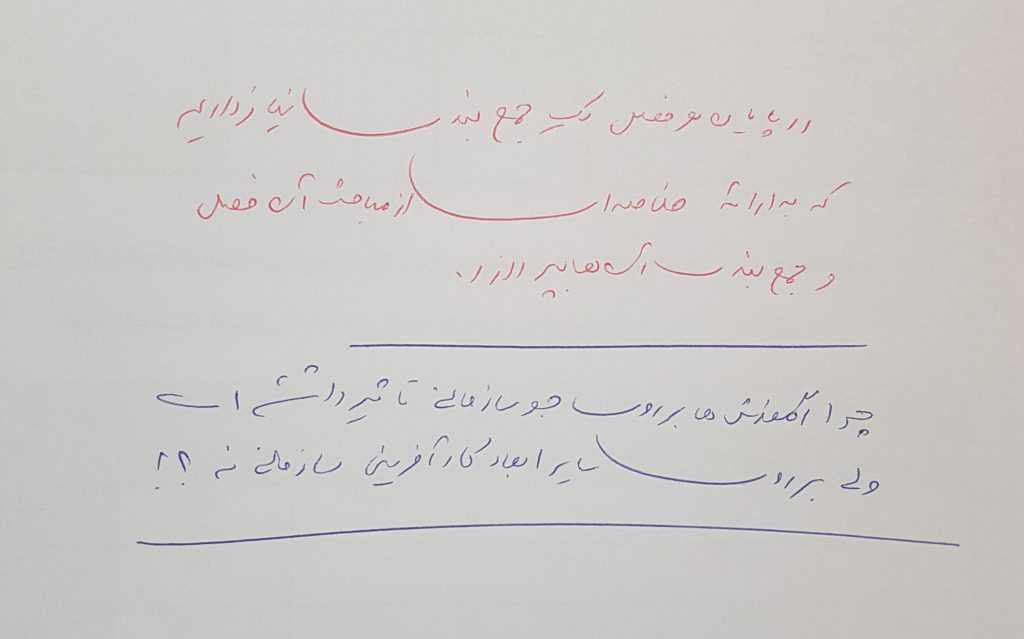 در پایان هر فصل یک جمع بندی نیاز داریم
که به ارائه خلاصه‌ای از مباحث آن فصل
و جمع بندی آن‌ها بپردازد.
چرا آموزش ها بر روی جو سازمانی تاثیر داشته است
ولی بر روی سایر ابعاد کارآفرینی سازمانی نه ؟؟